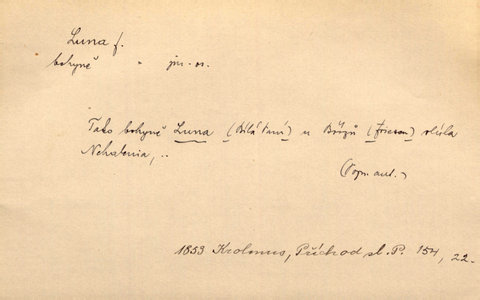 Luna f.
bohyně " jm. os.
Tako bohyně Luna (Bílá Paní) u Brozů (Friesen) slula
Nehalenia, ..
(Pozn. aut.)
1853 Krolmus, Příchod sl. P. 154, 22.